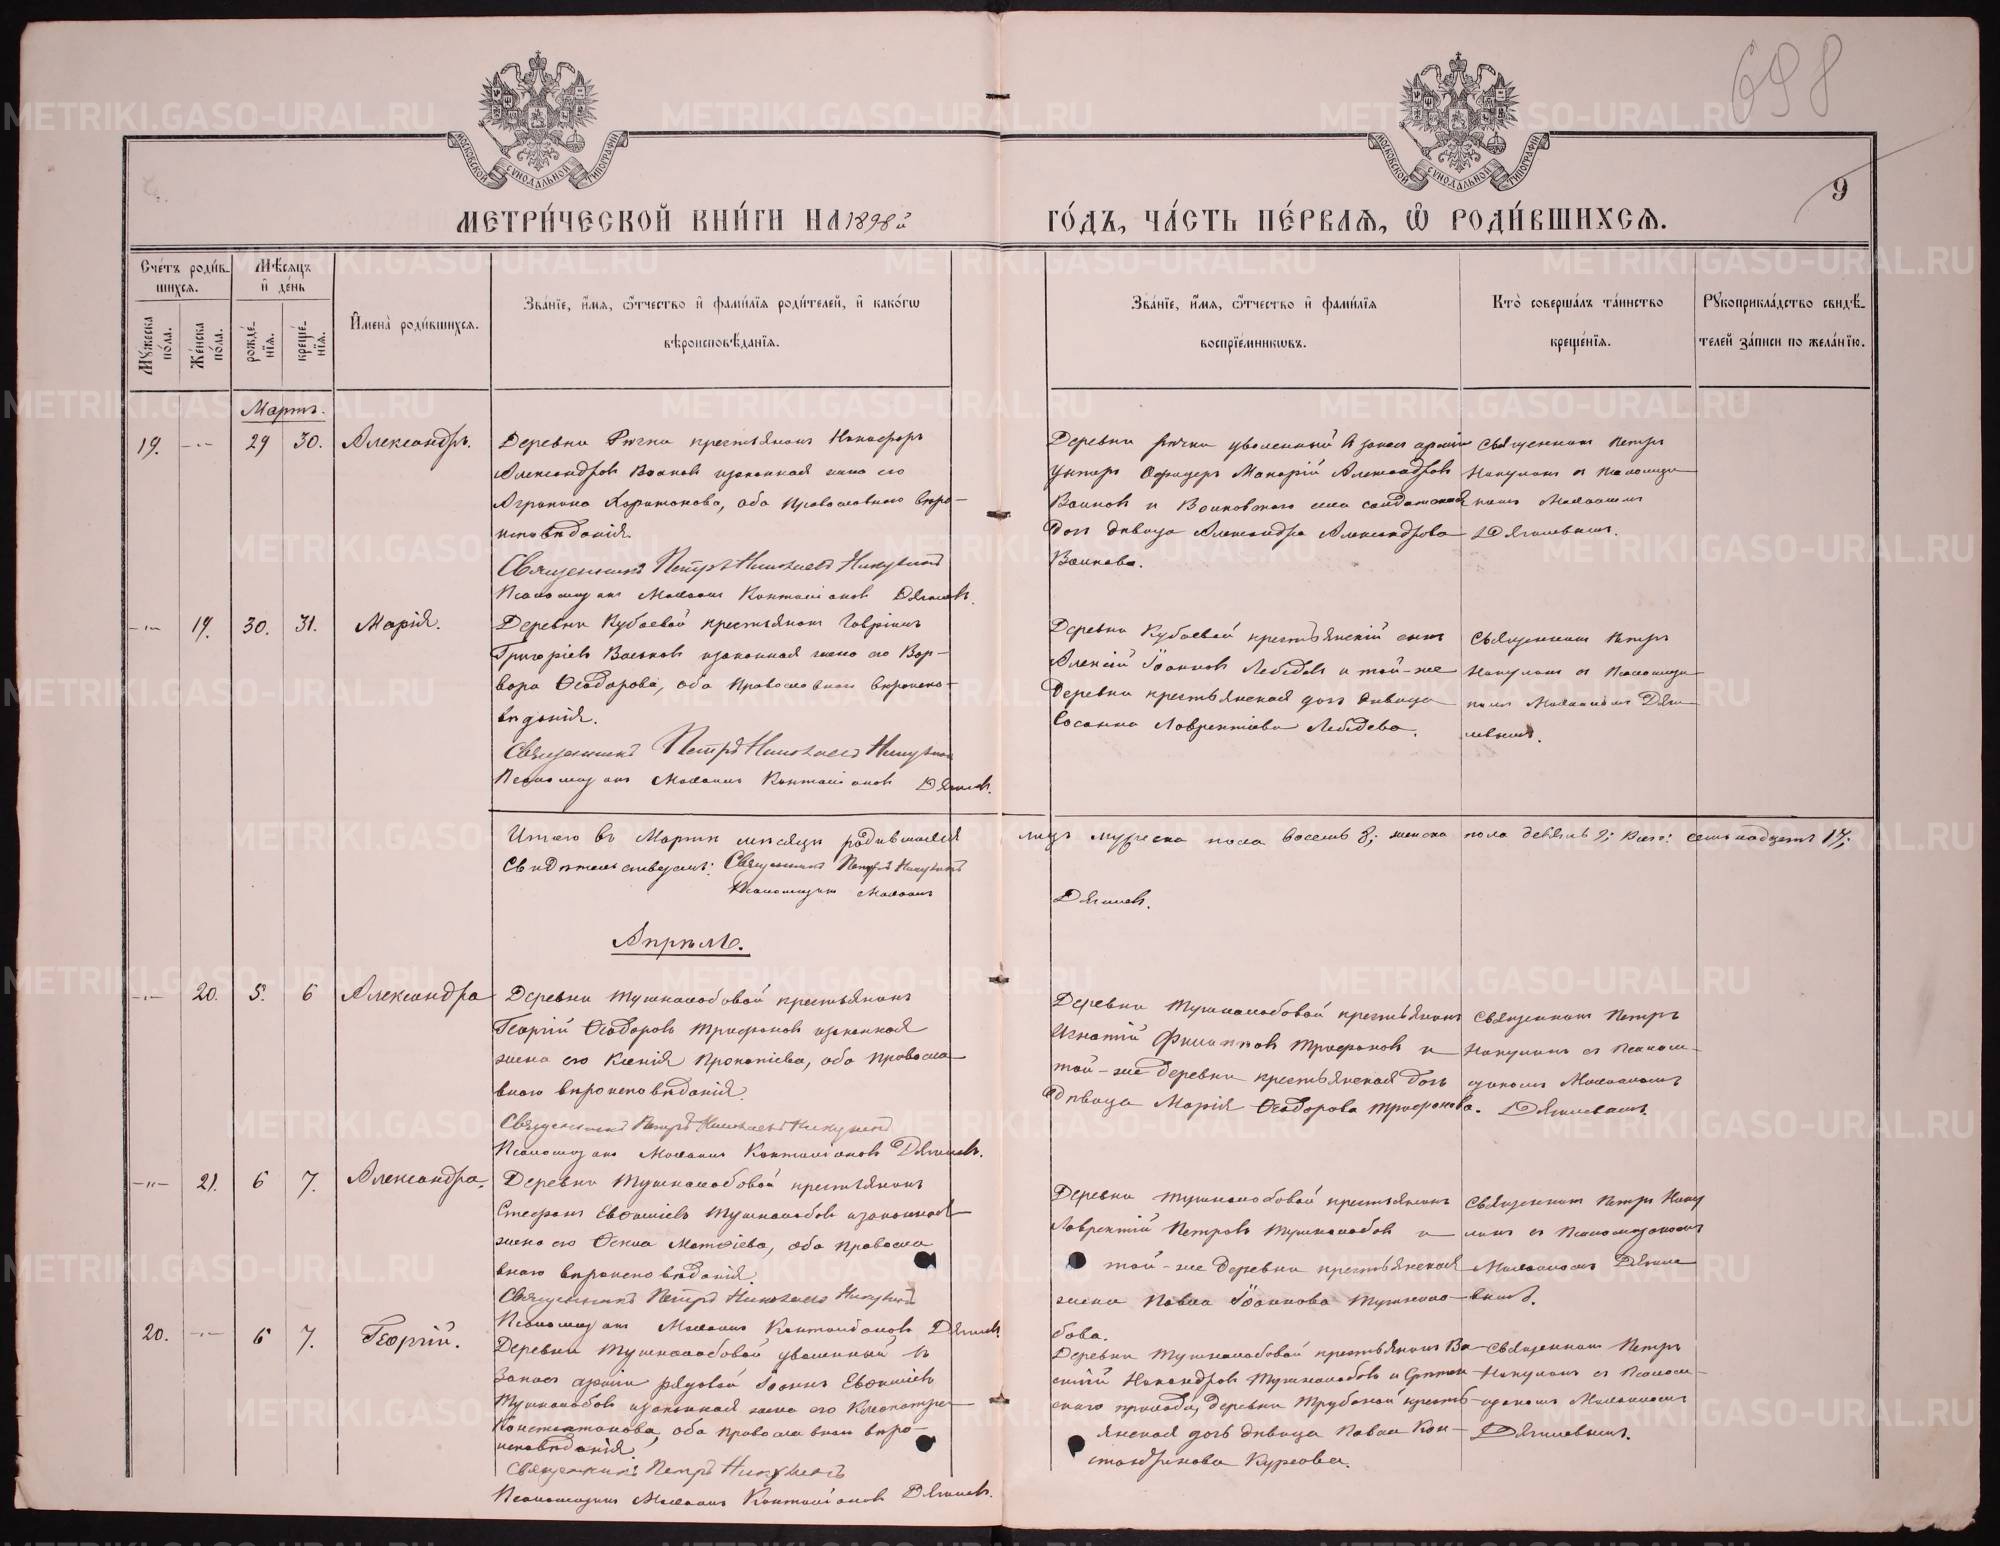 698
9
МЕТРИ́ЧЕСКОЙ КНИ́ГИ НА 1898й ГО́ДЪ, ЧА́СТЬ ПЕ́РВАЯ, Ѿ РОДИ́ВШИХСЯ.
МОСКОВСКОЙ СѴНОДАЛЬНОЙ ТИПОГРАФІИ
МОСКОВСКОЙ СѴНОДАЛЬНОЙ ТИПОГРАФІИ
Счетъ роди́вшихся.
Мѣсяцъ и день
Мужеска по́ла.
Же́нска по́ла.
рожде́нїя.
креще́нїя.
Имена̀ роди́вшихся.
Зва́нїе, и҆́мя, ѻ҆́тчество и҆ фами́лїя роди́телей, и҆ како́гѡ вѣроисповѣ́данїя.
Зва́нїе, и҆́мя, ѻ҆́тчество и҆ фами́лїя воспрїе́мникѡвъ.
Кто̀ соверша́лъ та́инство креще́нїя.
Рукоприкла́дство свидѣ́телей за́писи по жела́нїю.
Мартъ.
19. -"- 29 30. Александръ.
Деревни Рѣчки крестьянинъ Никифоръ
Александровъ Воиновъ и законная жена его
Агрипина Харитонова, оба православнаго вѣро-
исповѣданія.
Священникъ Петръ Николаевъ Никулинъ
Псаломщикъ Дягилевъ.
Деревни Рѣчки уволенный в запас арміи
Унтеръ Офицеръ Макарій Александровъ
Воиновъ и Воиновскаго села солдатская
дочь дѣвица Александра Александрова
Воинова.
Священникъ Петръ
Никулинъ съ Псаломщи-
комъ
Дягилевымъ.
-"- 19. 30. 31. Марія.
Деревни Кубаевой крестьянинъ Гавріилъ
Григоріевъ Васьковъ и законная жена его Вар-
вара Ѳеодорова, оба православнаго вѣроиспо-
вѣданія.
Священникъ Петръ Николаевъ Никулинъ
Псаломщикъ Дягилевъ.
Деревни Кубаевой крестьянскій сынъ
Алексій Іоанновъ Лебедевъ и той-же
деревни крестьянская дочь дѣвица
Сосанна Лаврентіева Лебедева.
Священникъ Петръ
Никулинъ съ Псаломщи-
комъ Дяги-
левымъ.
Итого въ Мартѣ мѣсяцѣ родившихся лицъ мужеска пола восемь 8; женска пола девять 9; всего: семнадцать 17;
Свидѣтельствуемъ: Священникъ Петръ Никулинъ
Псаломщикъ
Дягилевъ.
Апрѣль.
-"- 20. 5. 6 Александра
Деревни Тушкалобовой крестьянинъ
Георгій Ѳеодоровъ Трифоновъ и законная
жена его Ксенія Прокопіева, оба правосла-
внаго вѣроисповѣданія.
Священникъ Петръ Николаевъ Никулинъ
Псаломщикъ Дягилевъ.
Деревни Тушкалобовой крестьянинъ
Игнатій Филипповъ Трифоновъ и
той-же деревни крестьянская дочь
дѣвица Марія Ѳеодорова Трифонова.
Священникъ Петръ
Никулинъ съ Псалом-
щикомъ
Дягилевымъ.
-"- 21. 6 7. Александра.
Деревни Тушкалобовой крестьянинъ
Стефанъ Евѳиміевъ Тушкалобовъ и законная
жена его Матѳіева, оба правосла
внаго вѣроисповѣданія.
Священникъ Петръ Николаевъ Никулинъ
Псаломщикъ Дягилевъ.
Деревни Тушкалобовой крестьянинъ
Лаврентій Петровъ Тушкалобовъ и
той-же деревни крестьянская
жена Павла Іоаннова Тушкало-
бова.
Священникъ Петръ Нику
линъ съ Псаломщикомъ
Дягиле
вымъ.
20. -"- 6 7. Георгій.
Деревни Тушкалобовой уволенный въ
запасъ арміи рядовой Іоаннъ Евѳиміевъ
Тушкалобовъ и законная жена его Клеопатра
Константинова, оба православнаго вѣро-
исповѣданія.
Священникъ Петръ Никулинъ
Псаломщикъ Дягилевъ.
Деревни Тушкалобовой крестьянинъ Ва-
силій Никандровъ Тушкалобовъ и
скаго прихода, деревни Трубиной кресть
янская дочь дѣвица Павла Кон-
стантинова Курсова.
Священникъ Петръ
Никулинъ съ Псалом-
щикомъ
Дягилевымъ.
METRIKI.GASO-URAL.RU